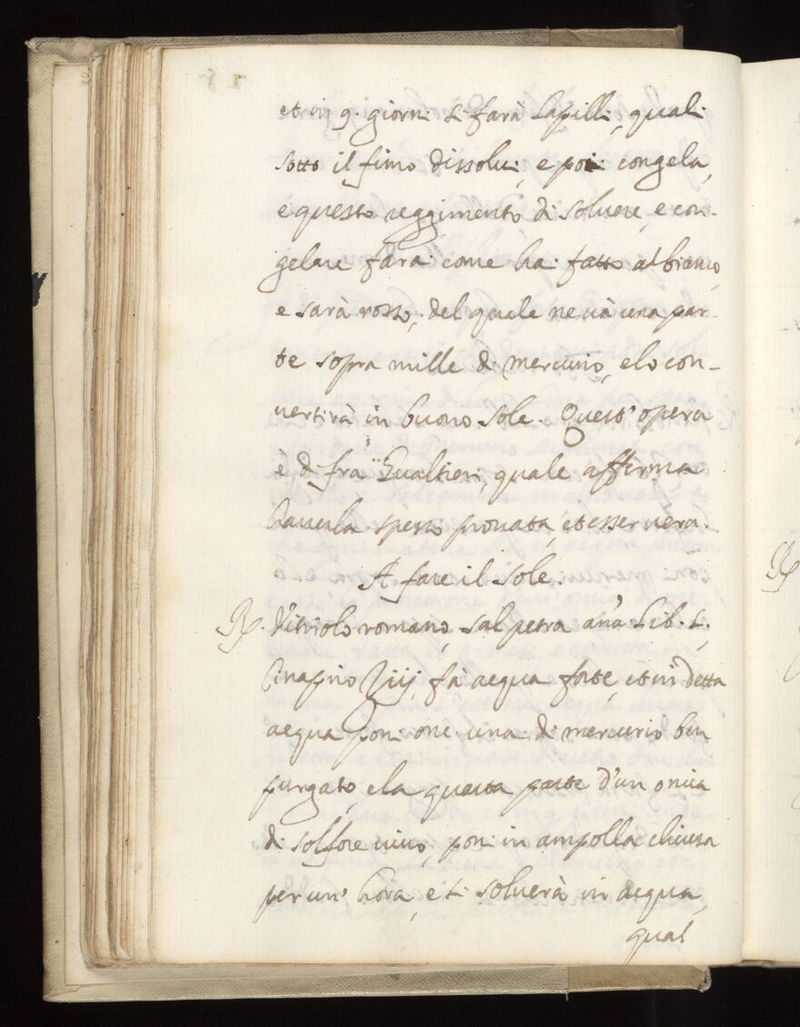 et in 9. giorni si farà lapilli, quali
sotto il fimo dissolui, e poi congela,
e questo reggimento di soluere, e con-
gelare farai come hai fatto al bianco,
e sarà rosso, del quale ne uà una par-
te sopra mille di mercurio, e lo con-
uertirà in buono sole. Quest'opera
è di fra Gualtieri, quale afferma
hauerla spesso prouata, et esser uera.
A fare il sole.
℞. Vitriolo romano, sal petra ana lib. i.,
Cinaprio ℥iij, fà acqua forte, et in detta
acqua poni onc. una di mercurio ben
purgato, e la quarta parte d'un oncia
di solfore uiuo, poni in ampolla chiusa
per un' hora, e si soluerà in acqua,
qual